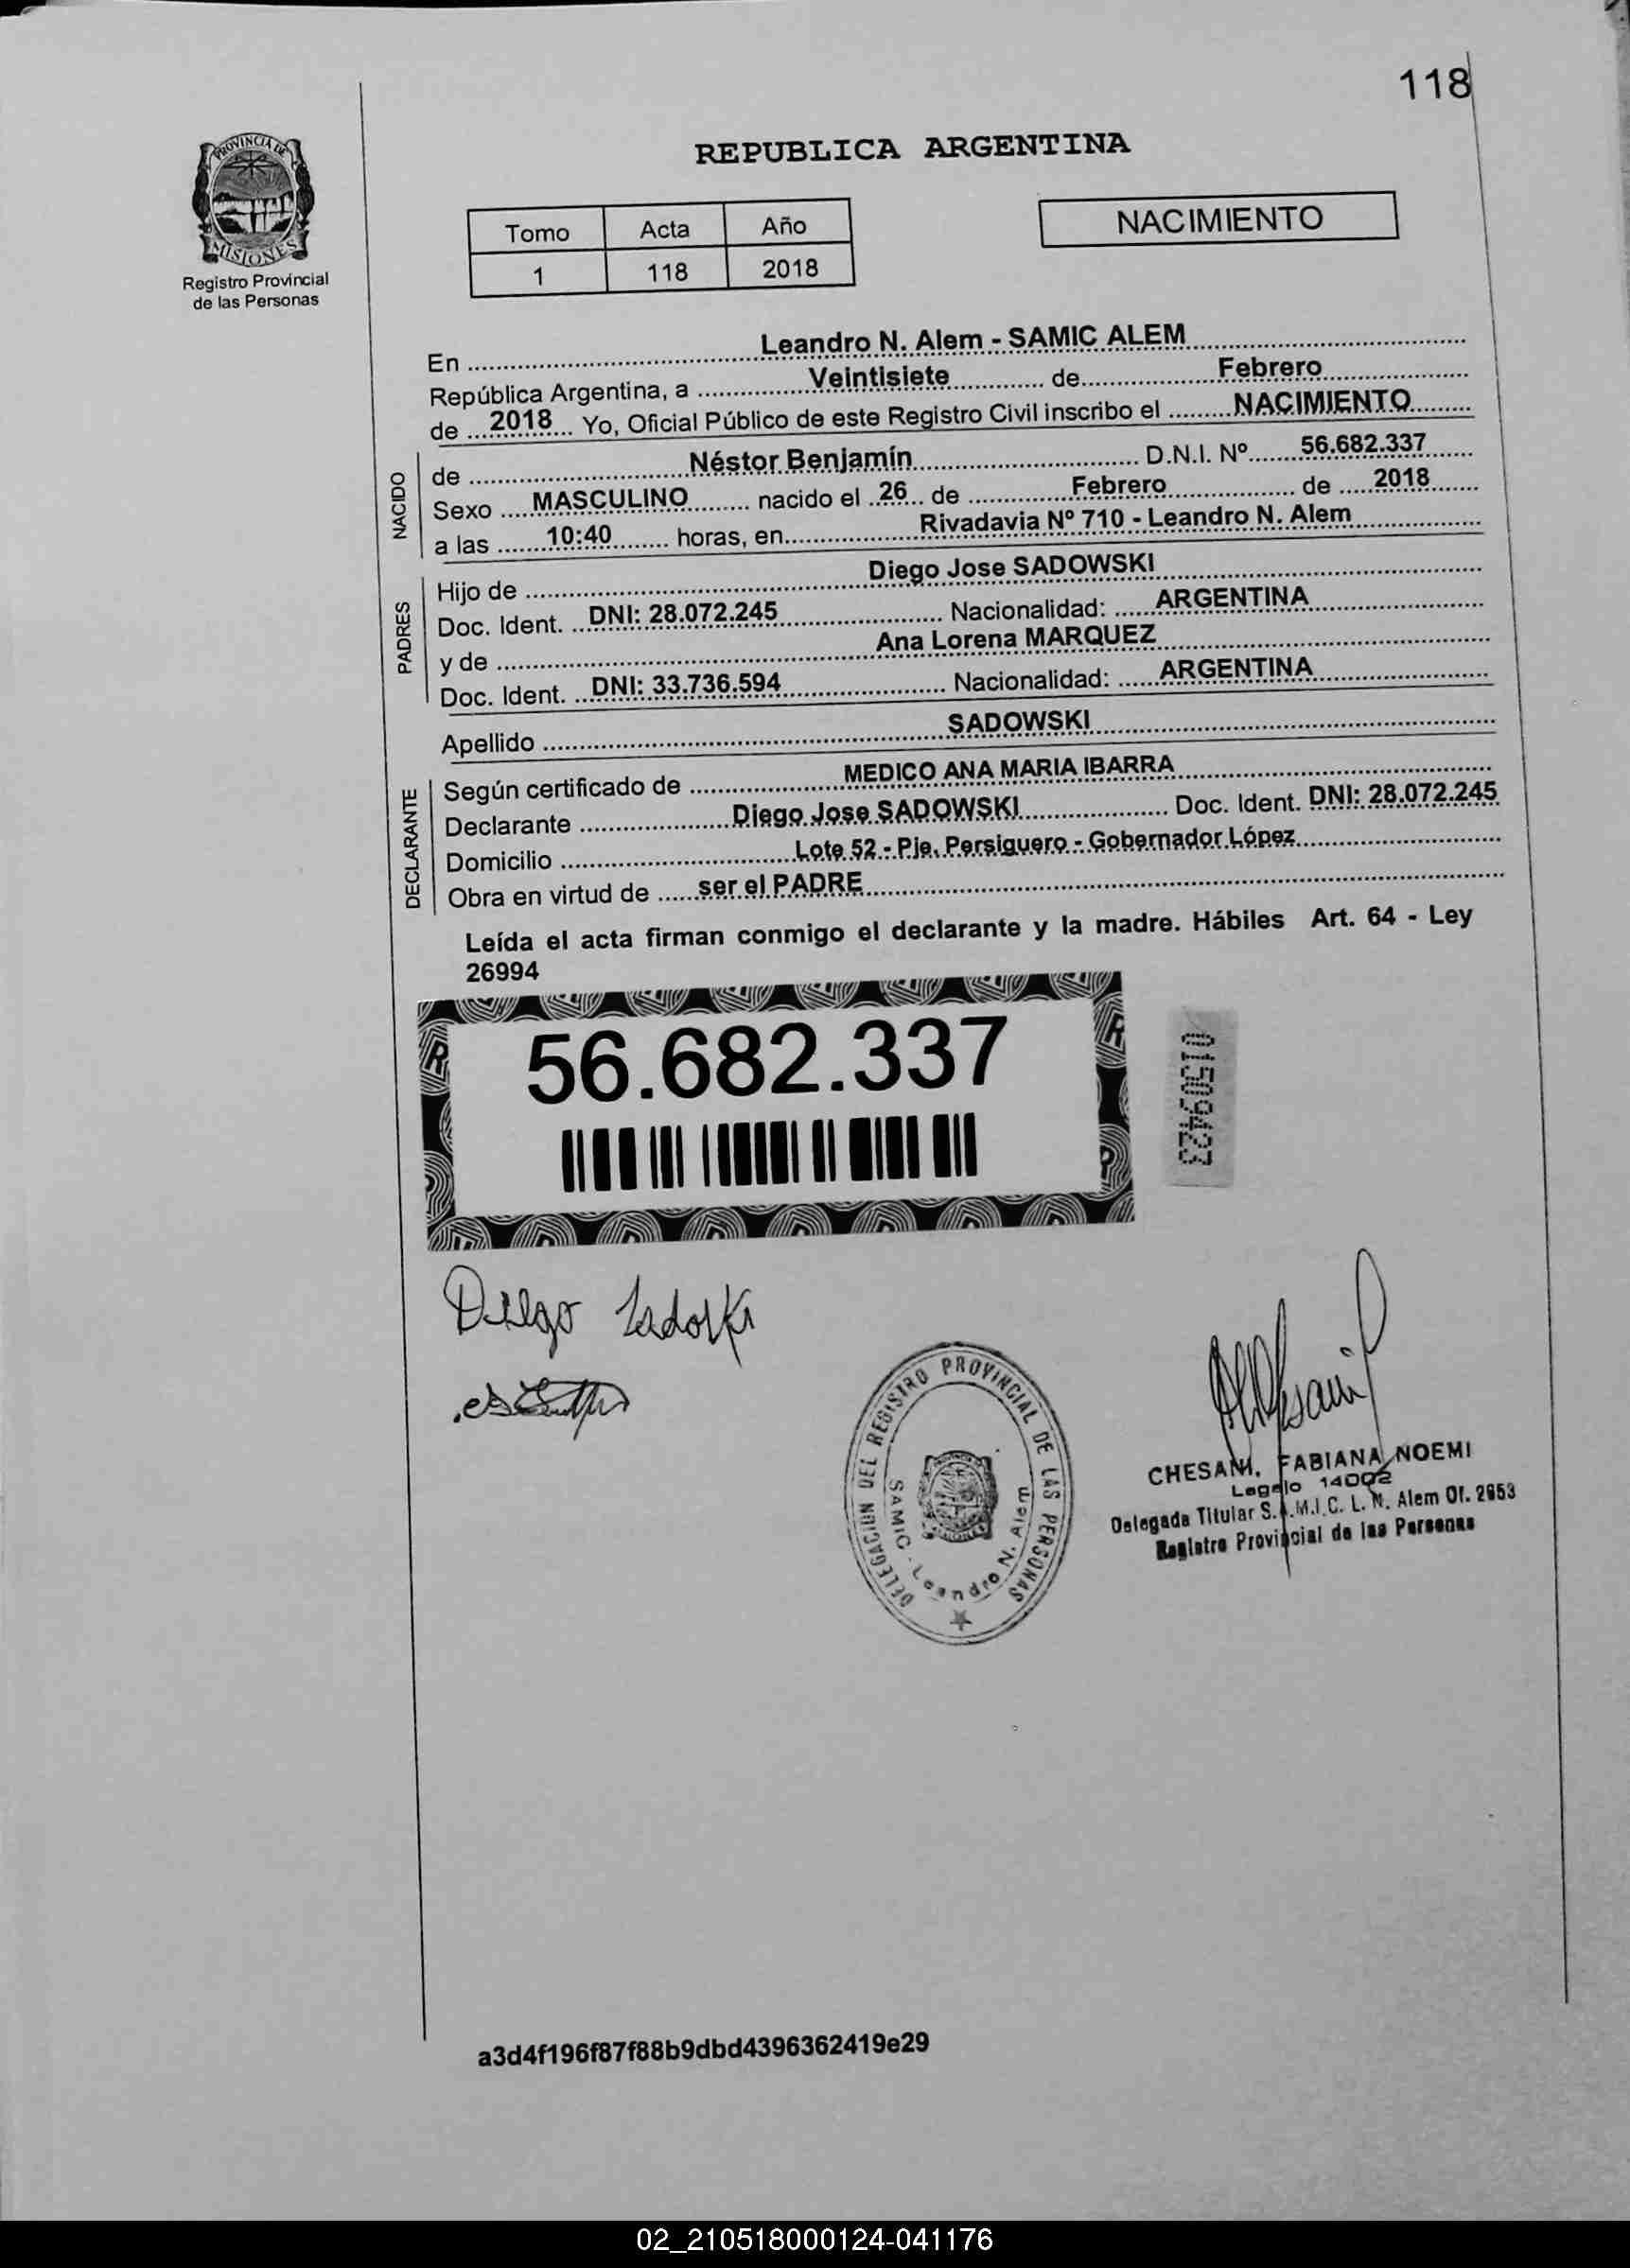 118
PROVINCIA DE
MISIONES
Registro Provincial
de las Personas
REPUBLICA ARGENTINA
Tomo Acta Año
1 118 2018
NACIMIENTO
En Leandro N. Alem - SAMIC ALEM
República Argentina, a Veintisiete de Febrero
de 2018 Yo, Oficial Público de este Registro Civil inscribo el NACIMIENTO
NACIDO
de Néstor Benjamín D.N.I. Nº 56.682.337
Sexo MASCULINO nacido el 26 de Febrero de 2018
a las 10:40 horas, en Rivadavia Nº 710 - Leandro N. Alem
PADRES
Hijo de Diego Jose SADOWSKI
Doc. Ident. DNI: 28.072.245 Nacionalidad: ARGENTINA
y de Ana Lorena MARQUEZ
Doc. Ident. DNI: 33.736.594 Nacionalidad: ARGENTINA
Apellido SADOWSKI
DECLARANTE
Según certificado de MEDICO ANA MARIA IBARRA
Declarante Diego Jose SADOWSKI Doc. Ident. DNI: 28.072.245
Domicilio Lote 52 - Pje. Persiguero - Gobernador López
Obra en virtud de ser el PADRE
Leída el acta firman conmigo el declarante y la madre. Hábiles Art. 64 - Ley
26994
56.682.337
01509423
Diego
DELEGACION DEL REGISTRO PROVINCIAL DE LAS PERSONAS
SAMIC - Leandro N. Alem
CHESANI, FABIANA NOEMI
Legajo 14002
Delegada Titular S.A.M.I.C. L. N. Alem Of. 2653
Registro Provincial de las Personas
a3d4f196f87f88b9dbd4396362419e29
02_210518000124-041176